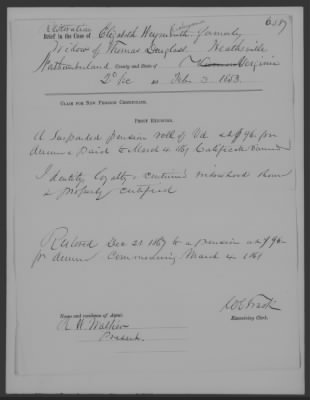 Restoration
6057
Brief in the Case of Elizabeth Weymouth formerly
Widow of Thomas Douglass Heathsville
Northumberland County and State of Virginia
2d &c Feb 3. 1853.
CLAIM FOR NEW PENSION CERTIFICATE.
PROOF EXHIBITED.
A Suspended pension roll of Va at $96. per
annum & paid to March 4. 1861 Certificate
Identity, loyalty, continued widowhood shown
& property certified
Restored Dec 21 1867 to a pension at $96
per annum Commencing March 4, 1861
Examining Clerk.
Name and residence of Agent.
Present.